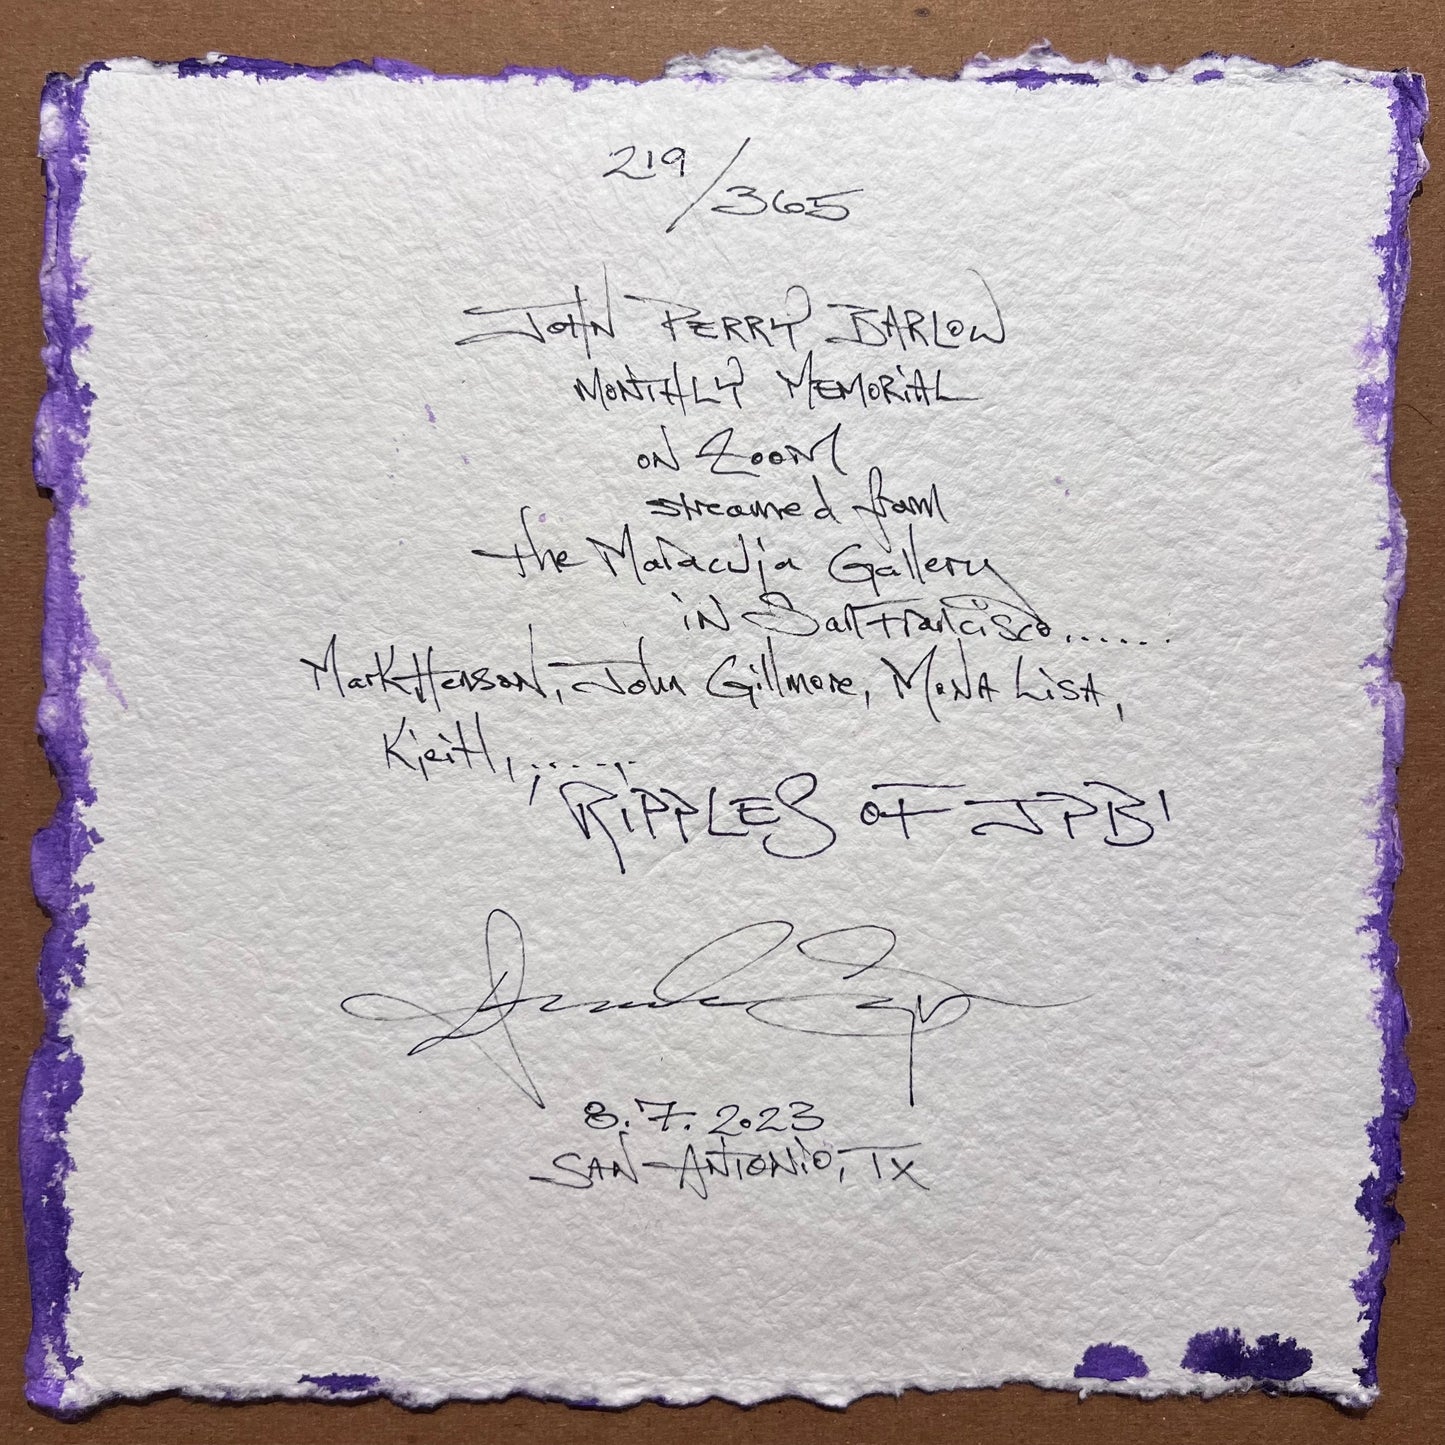 219/365
JOHN PERRY BARLOW
MONTHLY MEMORIAL
ON ZOOM
streamed from
the Maracuja Gallery
iN San Francisco.......
Mark Henson, John Gillmore, MONA LiSA,
Keith, ......
RiPPLES OF JPB!
8.7.2023
SAN ANTONiO, TX